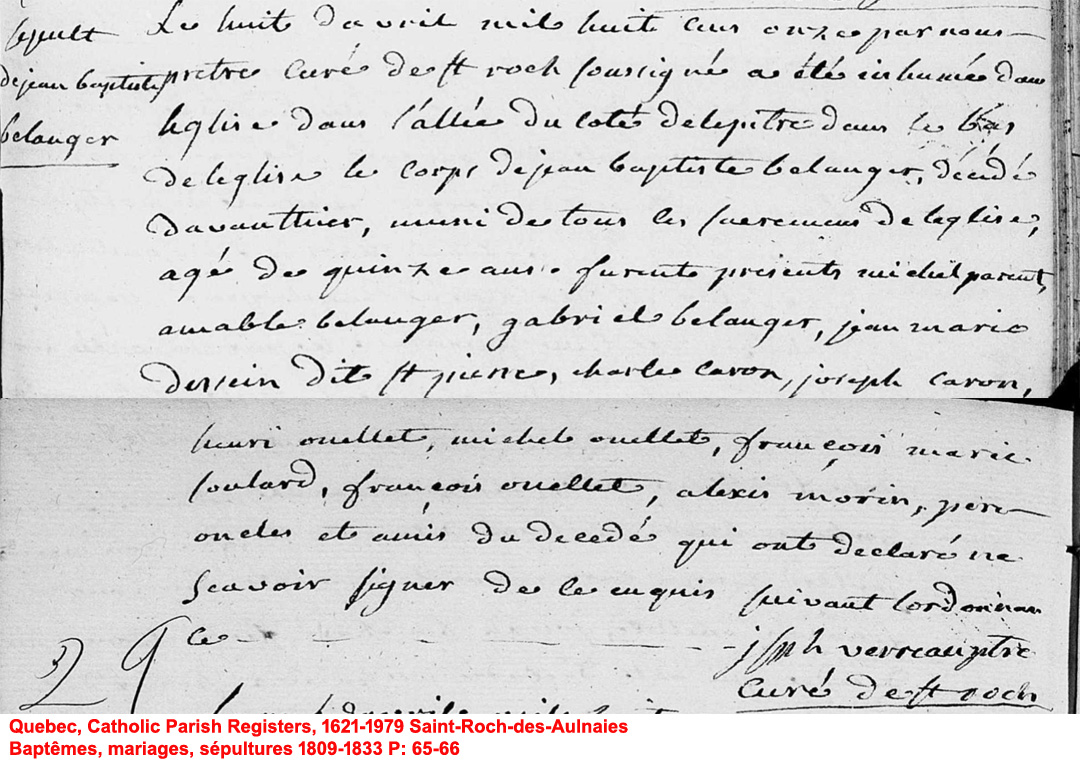 sepult
de jean baptiste
belanger
Le huit davril mil huit cens onze par nous
pretre curé de st roch soussigné a été inhumée dans
leglise dans l'allée du coté delepitre dans le bas
deleglise le corps dejean baptiste belanger, décédé
davanthier, muni de tous les sacremens de leglise,
agé de quinze ans. furent présents michel parent,
amable belanger, gabriel belanger, jean marie
dessein dit st pierre, charle caron, joseph caron,
henri ouellet, michel ouellet, françois marie
soulard, françois ouellet, alexis morin, pere
oncles et amis du decedé qui ont declaré ne
scavoir signer de ce enquis suivant lordonnan
ce
jsph verreau ptre
curé de st roch
Quebec, Catholic Parish Registers, 1621-1979 Saint-Roch-des-Aulnaies
Baptêmes, mariages, sépultures 1809-1833 P: 65-66